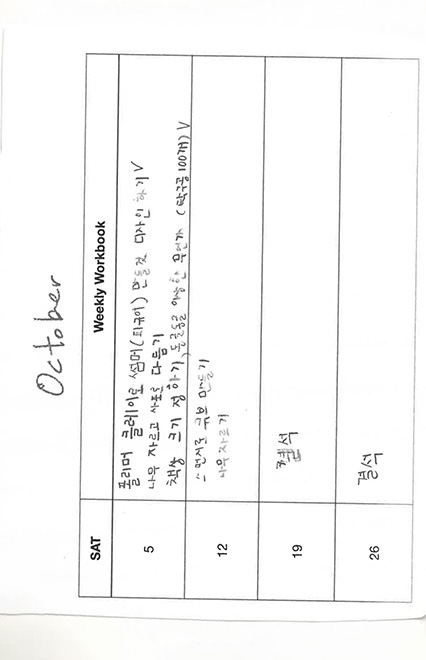 October
SAT
Weekly Workbook
5
폴리머 클레이로 썸머(피규어) 만들것 디자인 하기 V
나무 자르고 사포로 다듬기
책상 크기 정하기, 동글동글 예상한 무언가 (탁구공 100개) V
12
- 먼지로 큐브 만들기
나무자르기
19
결석
26
결석